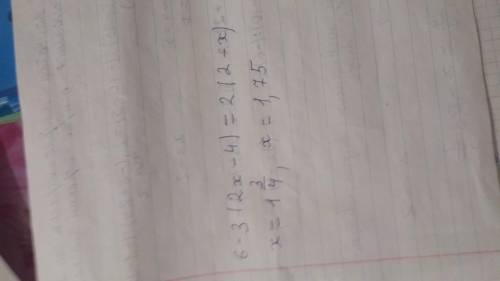 6-3(2x-4)=2(2+x)
x=1 3/4, x=1,75